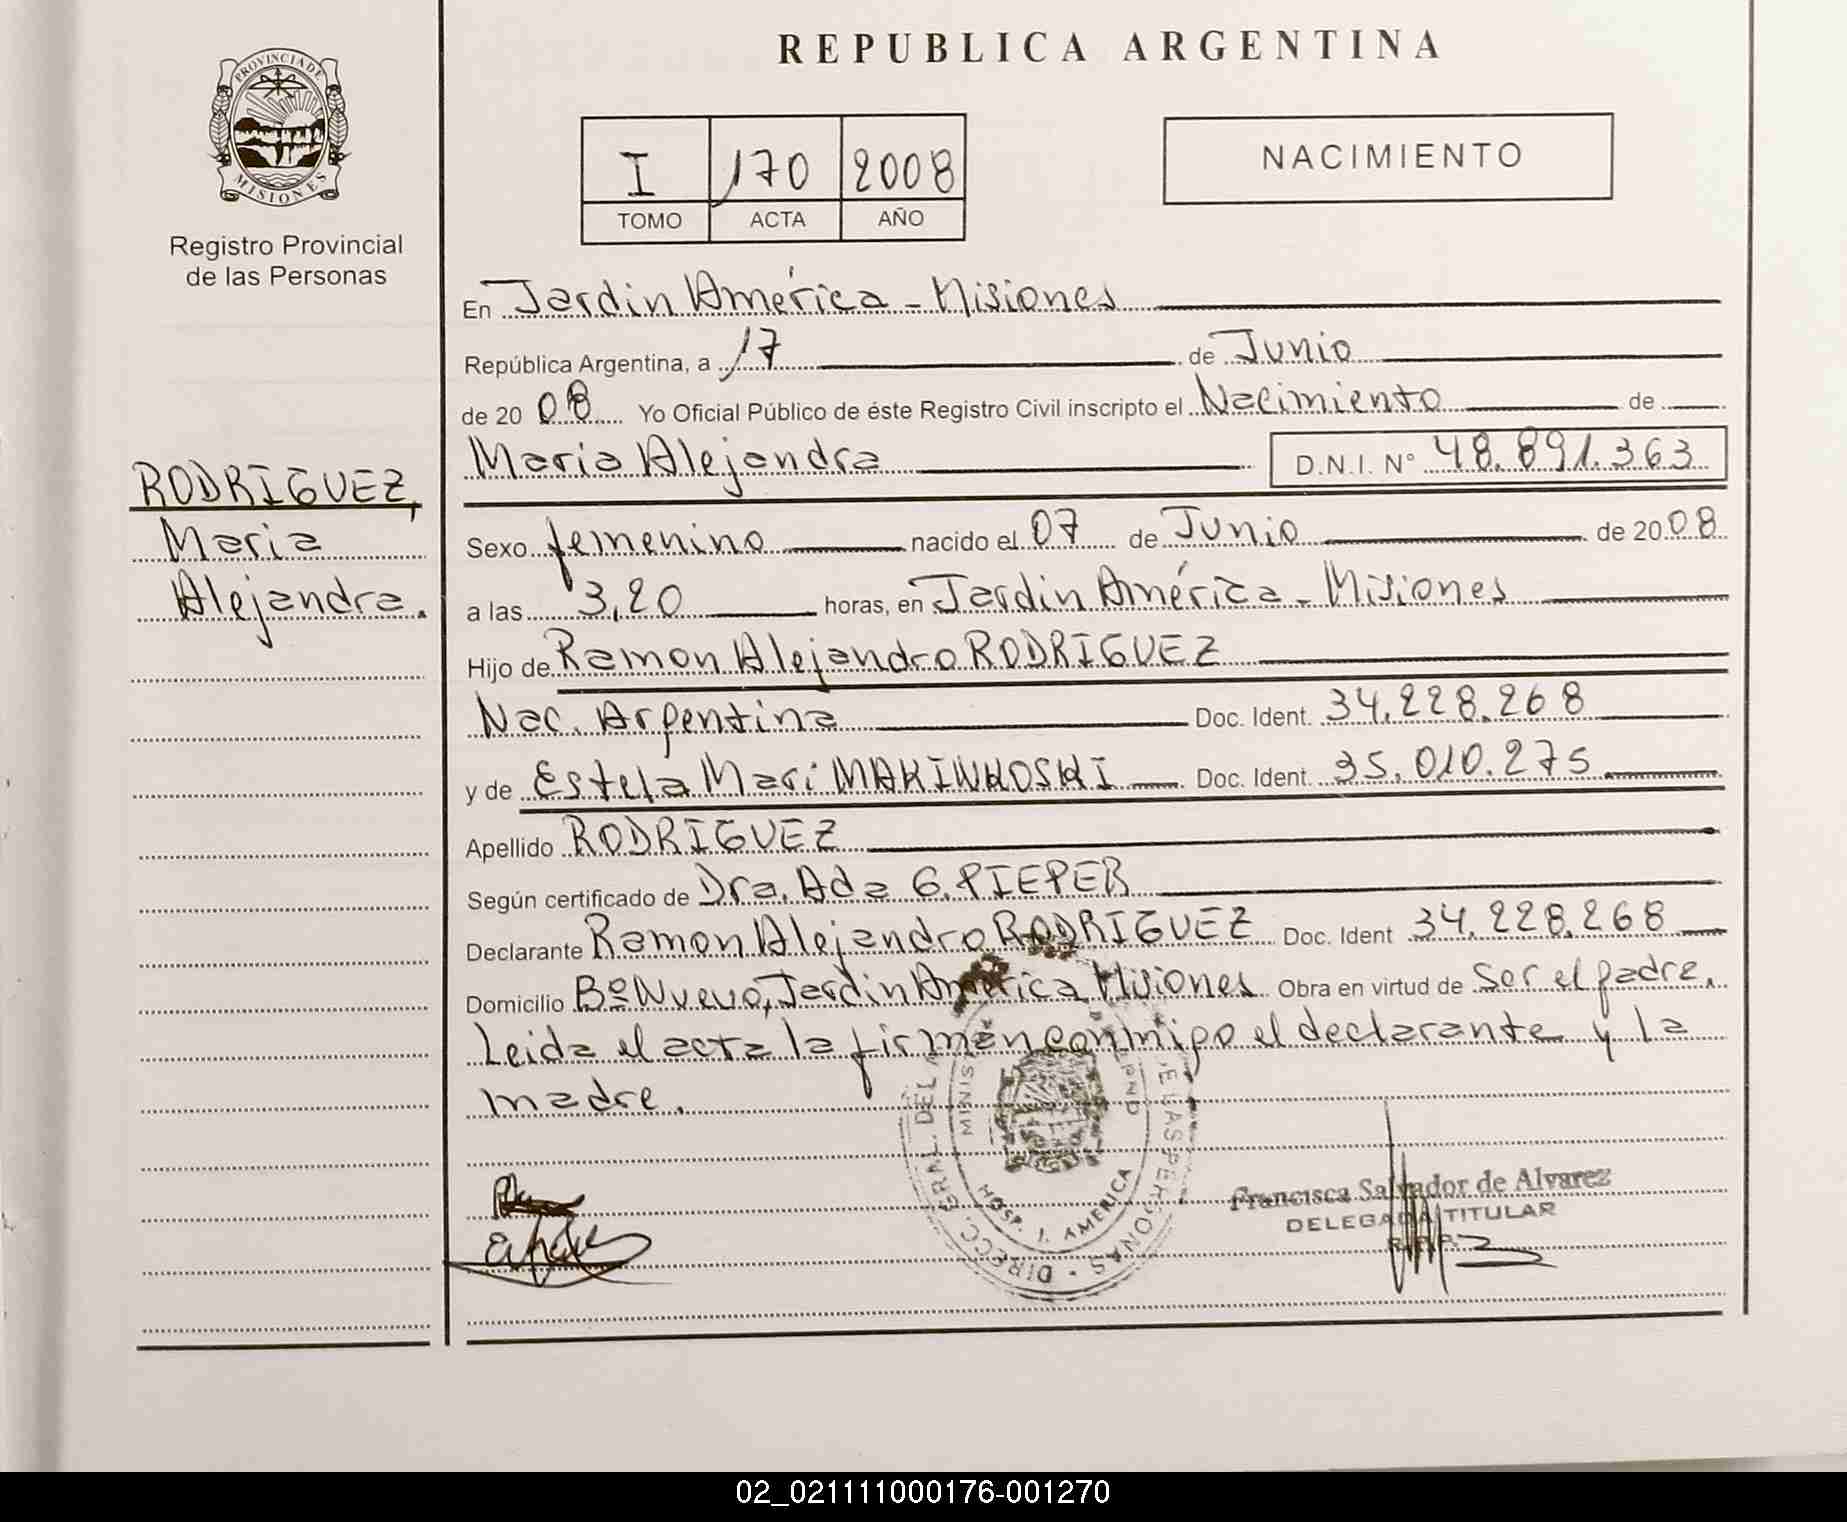 REPUBLICA ARGENTINA
PROVINCIA DE
MISIONES
Registro Provincial
de las Personas
I 170 2008
TOMO ACTA AÑO
NACIMIENTO
RODRIGUEZ,
Maria
Alejandra.
En Jardin América - Misiones
República Argentina, a 17 de Junio
de 2008 Yo Oficial Público de éste Registro Civil inscripto el Nacimiento de
Maria Alejandra D.N.I. N° 48.891.363
Sexo femenino nacido el 07 de Junio de 2008
a las 3,20 horas, en Jardin América - Misiones
Hijo de Ramon Alejandro RODRIGUEZ
Nac. Argentina Doc. Ident. 34.228.268
y de Estela Mari MAKINKOSKI Doc. Ident. 35.010.275
Apellido RODRIGUEZ
Según certificado de Dra. Ada G. PIEPER
Declarante Ramon Alejandro RODRIGUEZ Doc. Ident 34.228.268
Domicilio Bº Nuevo, Jardin América Misiones Obra en virtud de ser el padre.
Leida el acta la firman conmigo el declarante y la
madre.
HOSP. J. AMERICA
Francisca Salvador de Alvarez
DELEGADA TITULAR
R.P.P.
02_021111000176-001270